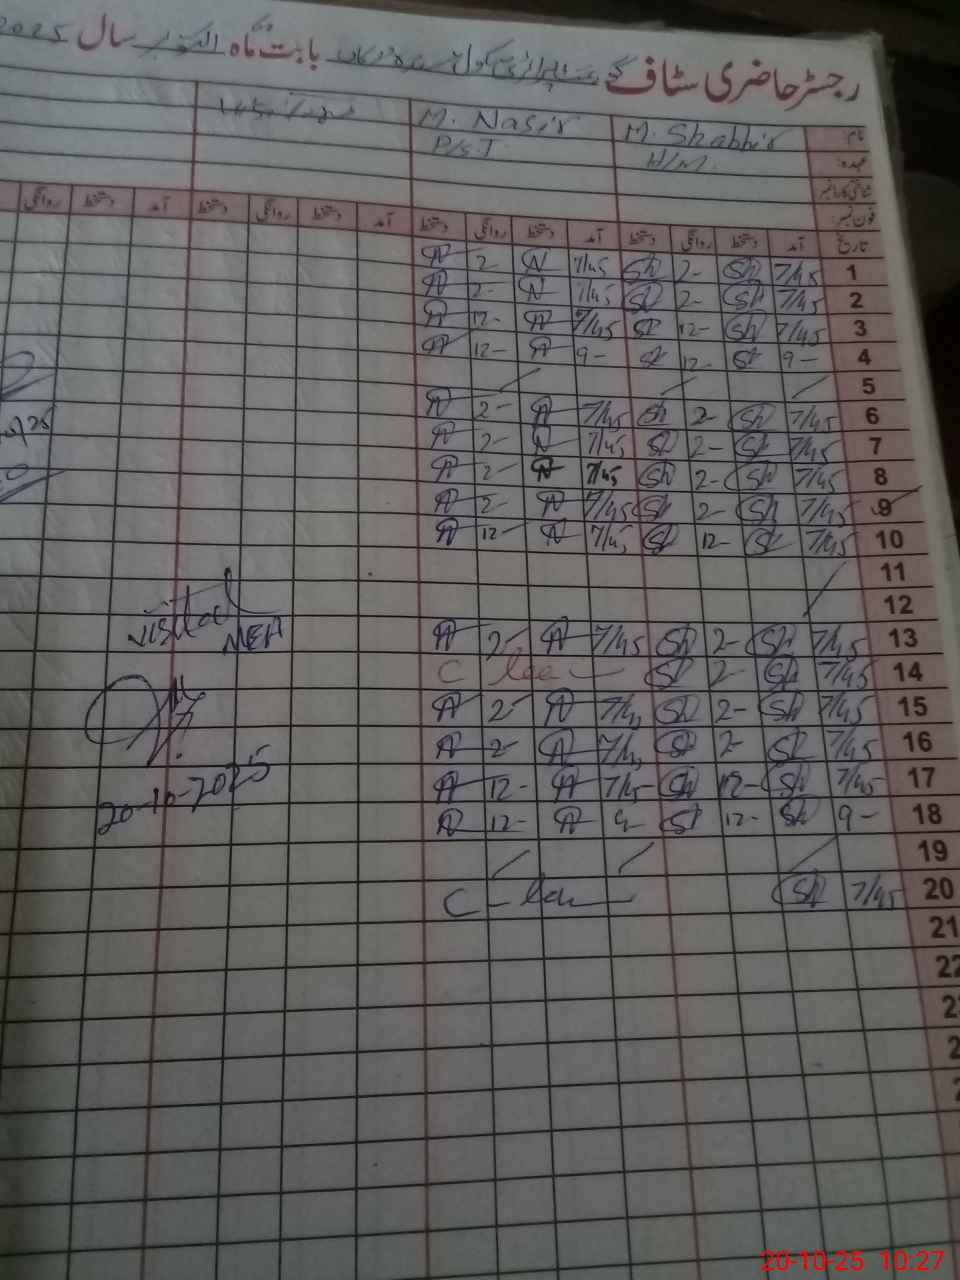 رجسٹر حاضری سٹاف گورنمنٹ پرائمری سکول بابت ماہ اکتوبر سال 2025
نام M. Shabbir M. Nasir
عہدہ H/M. P/S.T
شناختی کارڈ نمبر
فون نمبر
تاریخ آمد دستخط روانگی دستخط آمد دستخط روانگی دستخط آمد دستخط روانگی دستخط آمد دستخط روانگی
1 7/45 Sh 2- Sh 7/45 N 2- N
2 7/45 Sh 2- Sh 7/45 N 2- N
3 7/45 Sh 12- Sh 7/45 N 12- N
4 9- Sh 12- Sh 9- N 12- N
5
6 7/45 Sh 2- Sh 7/45 N 2- N
7 7/45 Sh 2- Sh 7/45 N 2- N
8 7/45 Sh 2- Sh 7/45 N 2- N
9 7/45 Sh 2- Sh 7/45 N 2- N
10 7/45 Sh 12- Sh 7/45 N 12- N
11
12
13 7/45 Sh 2- Sh 7/45 N 2- N
14 7/45 Sh 2- Sh C lea
15 7/45 Sh 2- Sh 7/45 N 2- N
16 7/45 Sh 2- Sh 7/45 N 2- N
17 7/45 Sh 12- Sh 7/45 N 12- N
18 9- Sh 12- Sh 9- N 12- N
19
20 7/45 Sh C - lea
21
22
Visited
MEA
20-10-2025
20-10-25 10:27